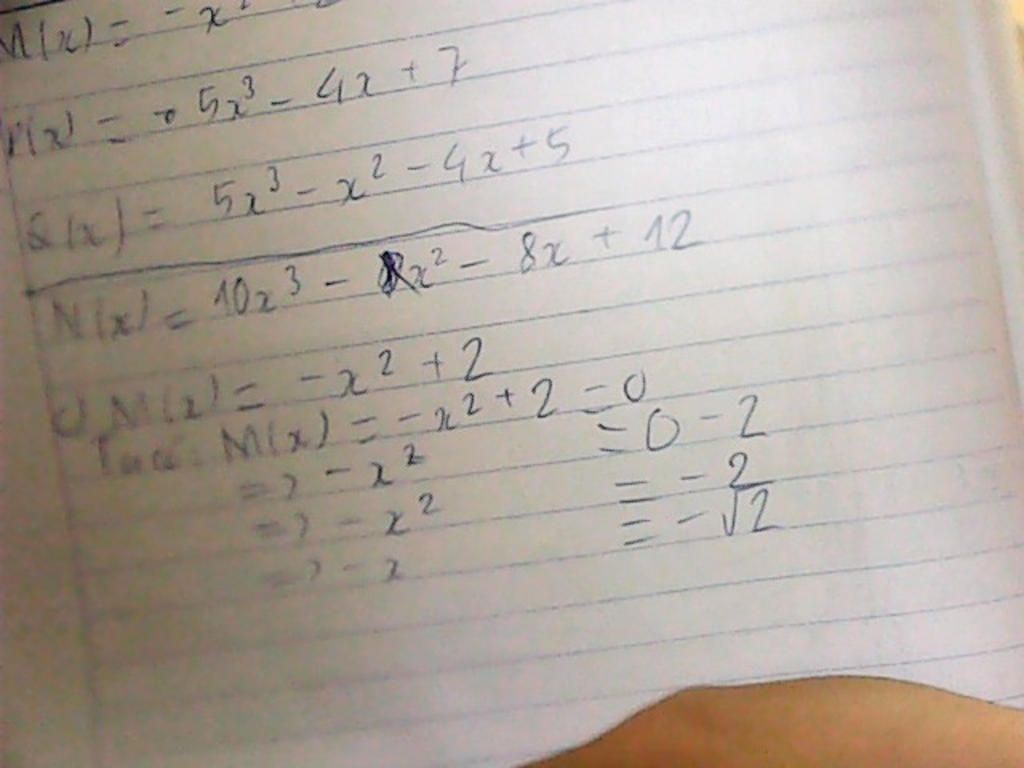 M(x) = -x²
P(x) = 5x³ - 4x + 7
Q(x) = 5x³ - x² - 4x + 5
N(x) = 10x³ - x² - 8x + 12
c) M(x) = -x² + 2
M(x) = -x² + 2 = 0
=> -x² = 0 - 2
=> -x² = -2
=> -x = -√2